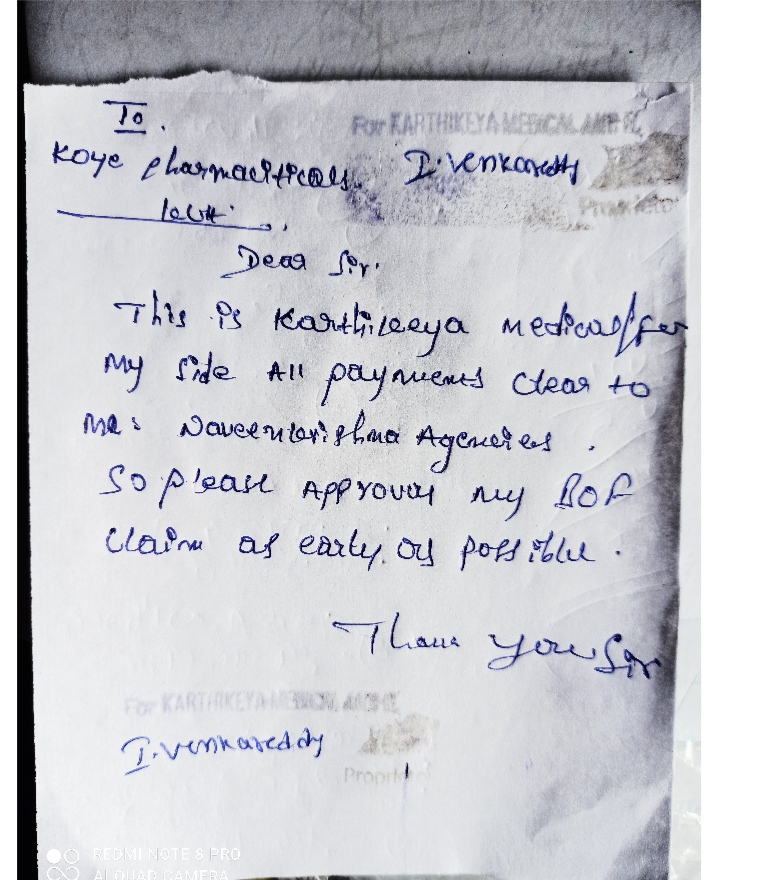 To.
For KARTHIKEYA MEDICAL AND
Koye pharmaciticals.
I. Venkareddy
Proprietor
Dear Sir.
This is Karthikeya medical/for
My Side All payments Clear to
Naveenkrishna Agencies .
So please Approval my BOF
Claim as early as possible .
Thank you Sir
For KARTHIKEYA MEDICAL AND
I. Venkareddy
REDMI NOTE 8 PRO
AI QUAD CAMERA